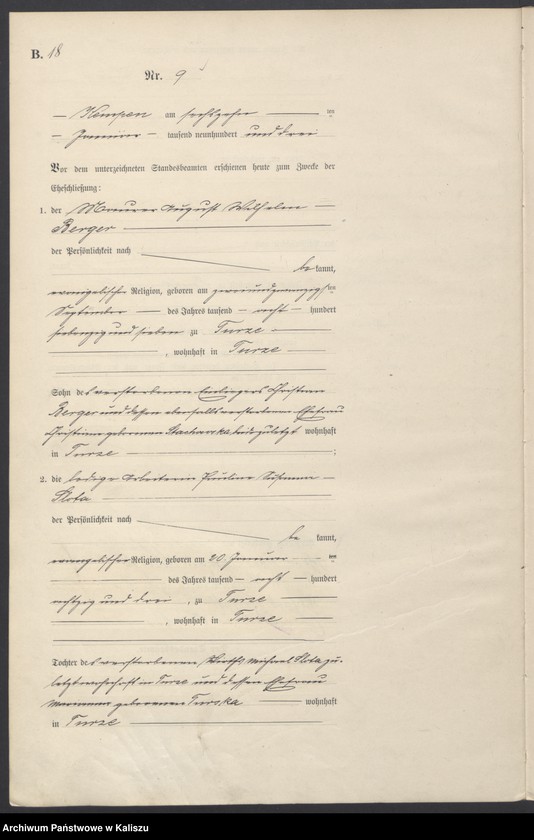 B. 18
Nr. 9
Kempen am sechszehn ten
Januar tausend neunhundert und drei
Vor dem unterzeichneten Standesbeamten erschienen heute zum Zwecke der
Eheschließung:
1. der Maurer August Wilhelm
Berger
der Persönlichkeit nach
be kannt,
evangelischer Religion, geboren am zweiundzwanzigsten
September des Jahres tausend acht hundert
siebenzig und sieben zu Turze
, wohnhaft in Turze
Sohn des verstorbenen Einliegers Christian
Berger und dessen ebenfalls verstorbenen Ehefrau
Christiane geborenen beide zuletzt wohnhaft
in Turze ;
2. die ledige Arbeiterin Pauline Susanna
Slota
der Persönlichkeit nach
be kannt,
evangelischer Religion, geboren am 20. Januar ten
des Jahres tausend acht hundert
achtzig und drei , zu Turze
, wohnhaft in Turze
Tochter des verstorbenen Wirths Michael Slota zu-
letzt wohnhaft in Turze und dessen Ehefrau
geborenen Turska wohnhaft
in Turze
Archiwum Państwowe w Kaliszu